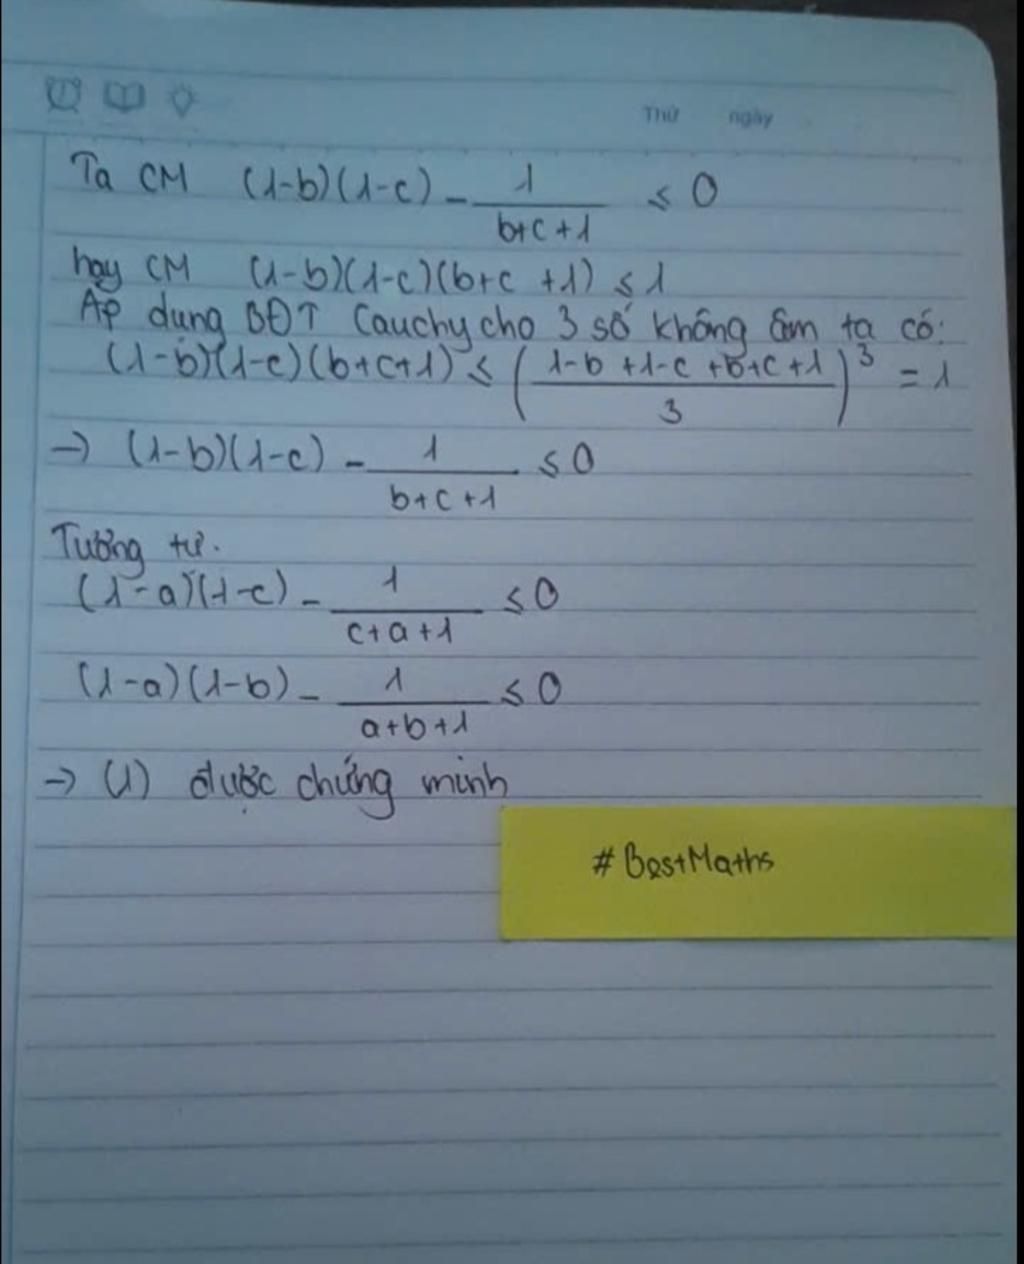 Thứ ngày
Ta CM (1-b)(1-c) - 1/(b+c+1) ≤ 0
hay CM (1-b)(1-c)(b+c+1) ≤ 1
Áp dụng BĐT Cauchy cho 3 số không âm ta có:
(1-b)(1-c)(b+c+1) ≤ ((1-b+1-c+b+c+1)/3)^3 = 1
→ (1-b)(1-c) - 1/(b+c+1) ≤ 0
Tương tự.
(1-a)(1-c) - 1/(c+a+1) ≤ 0
(1-a)(1-b) - 1/(a+b+1) ≤ 0
→ (1) được chứng minh
#BestMaths